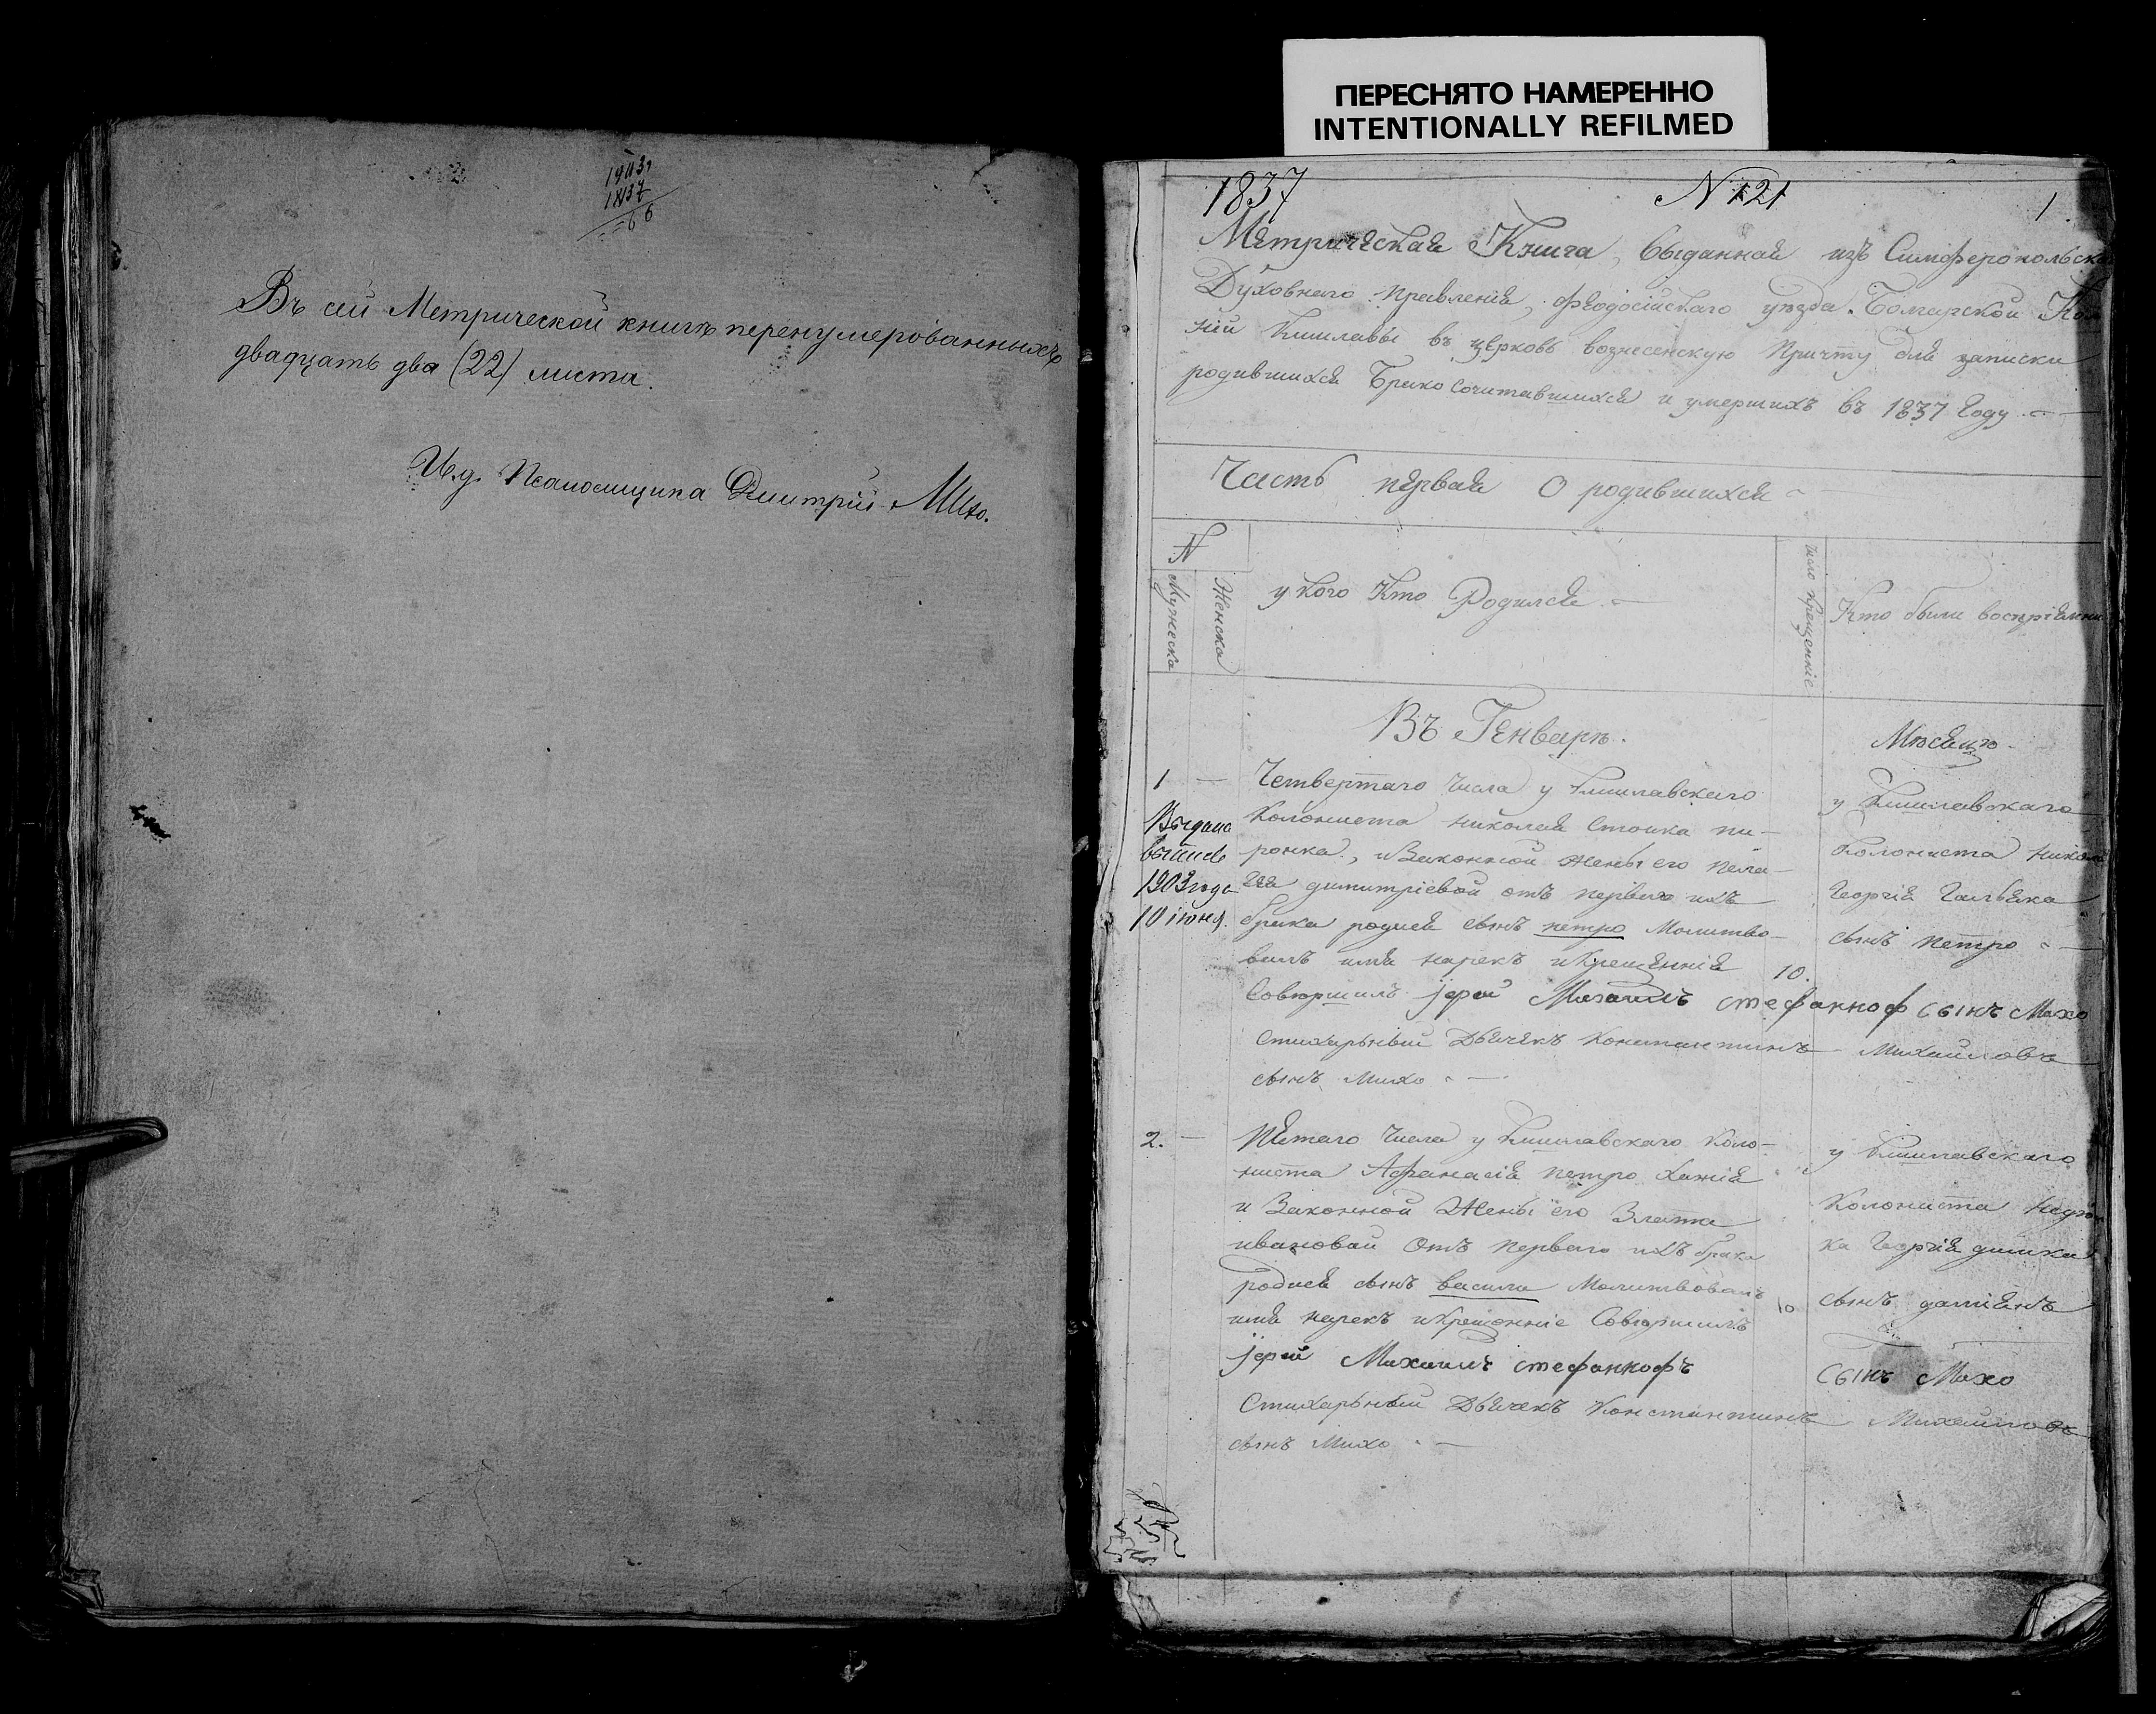 ПЕРЕСНЯТО НАМЕРЕННО
INTENTIONALLY REFILMED
Въ сей Метрической книгѣ перенумерованныхъ
двадцать два (22) листа.
И.д. Псаломщика Дмитрій Михо.
1837 N 121 1
Метрическая Книга, выданная изъ Симферопольска
Духовнаго Правленія, Феодосійскаго уѣзда Болгарской Ко
ніи Кишлавы въ церковь вознесенскую Причту для записки
родившихся Брако сочитавшихся и умершихъ въ 1837 Году
Часть первая О родившихся
N
Мужеска
Женска
у кого Кто Родился
число крещеніе
Кто были воспріемни
Въ Генварѣ. Мѣсяцѣ
1 — Четвертаго числа у Кишлавскаго
Колониста Николая Стоика пи-
ронка, и Законной жены его Пела-
геи димитріевой отъ перваго ихъ
брака родися сынъ петро Молитво-
валъ имя нарекъ и Крещеніе 10.
Совершилъ іерей Михаилъ стефанноф сынъ Михо
Стихарьный Дьячекъ Константинъ Михайловъ
сынъ Михо
Выдана
выпись
1903 года
10 іюня.
у Кишлавскаго
Колониста Никола
Георгія
сынъ петро
2. — Пятаго числа у Кишлавскаго Коло-
ниста Афанасія петро
и Законной Жены его Злата
ивановай Отъ перваго ихъ брака
родися сынъ васили Молитвовалъ
имя нарекъ и Крещенніе Совершилъ 10
іерей Михаилъ стефанкофъ сынъ Михо
Стихарьный Дьячекъ Константинъ Михайловъ
сынъ Михо
у Кишлавскаго
Колониста
ка Георгія
сынъ даміянъ